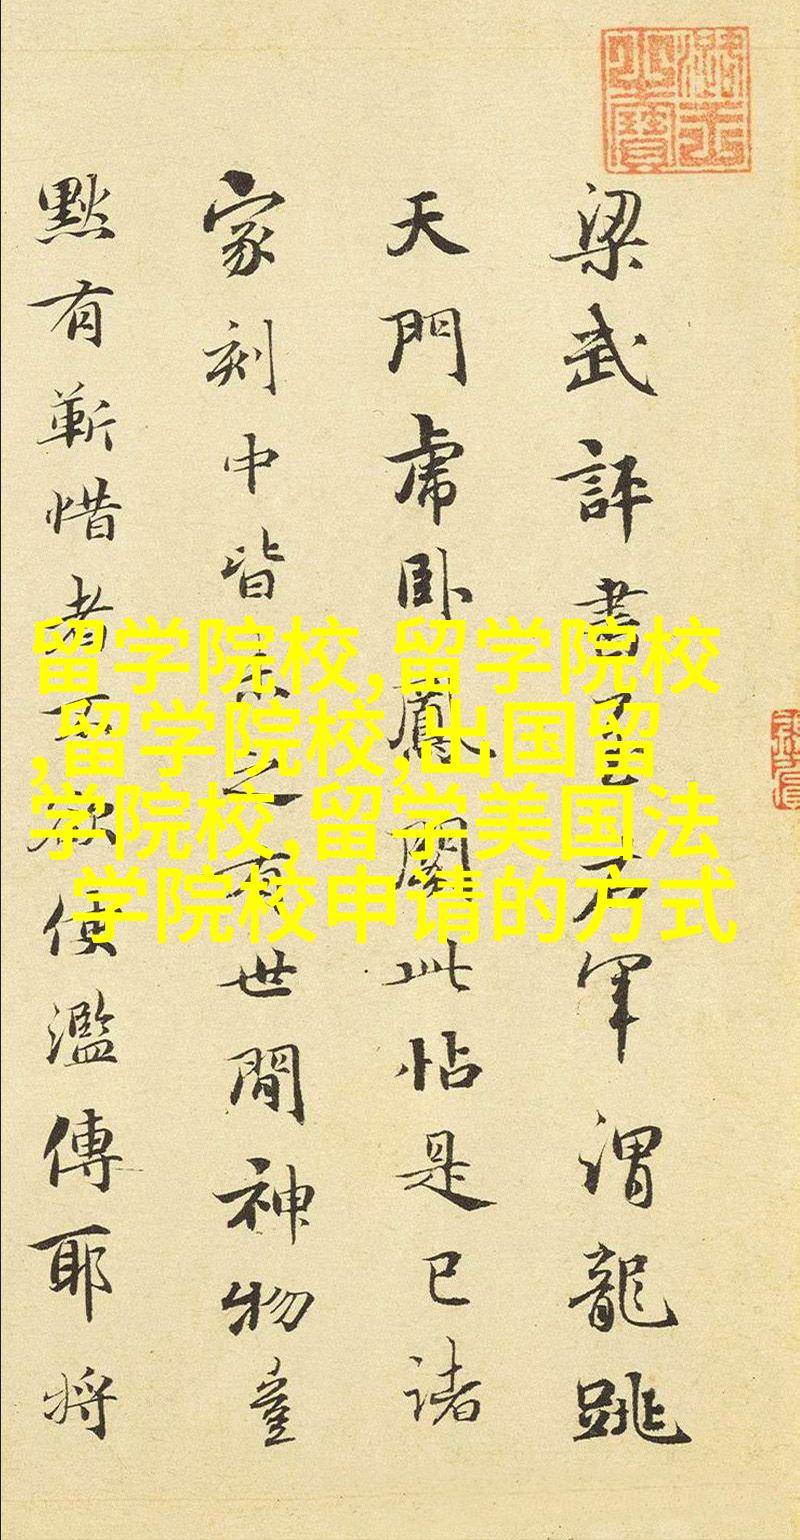 梁武評書至右軍謂龍跳
天門虎卧鳳閣此帖是已諸
家刻中皆未之有世間神物豈
黙有靳惜者不欲使濫傳耶将
留学院校,留学院校
,留学院校,出国留
学院校,留学美国法
学院校申请的方式